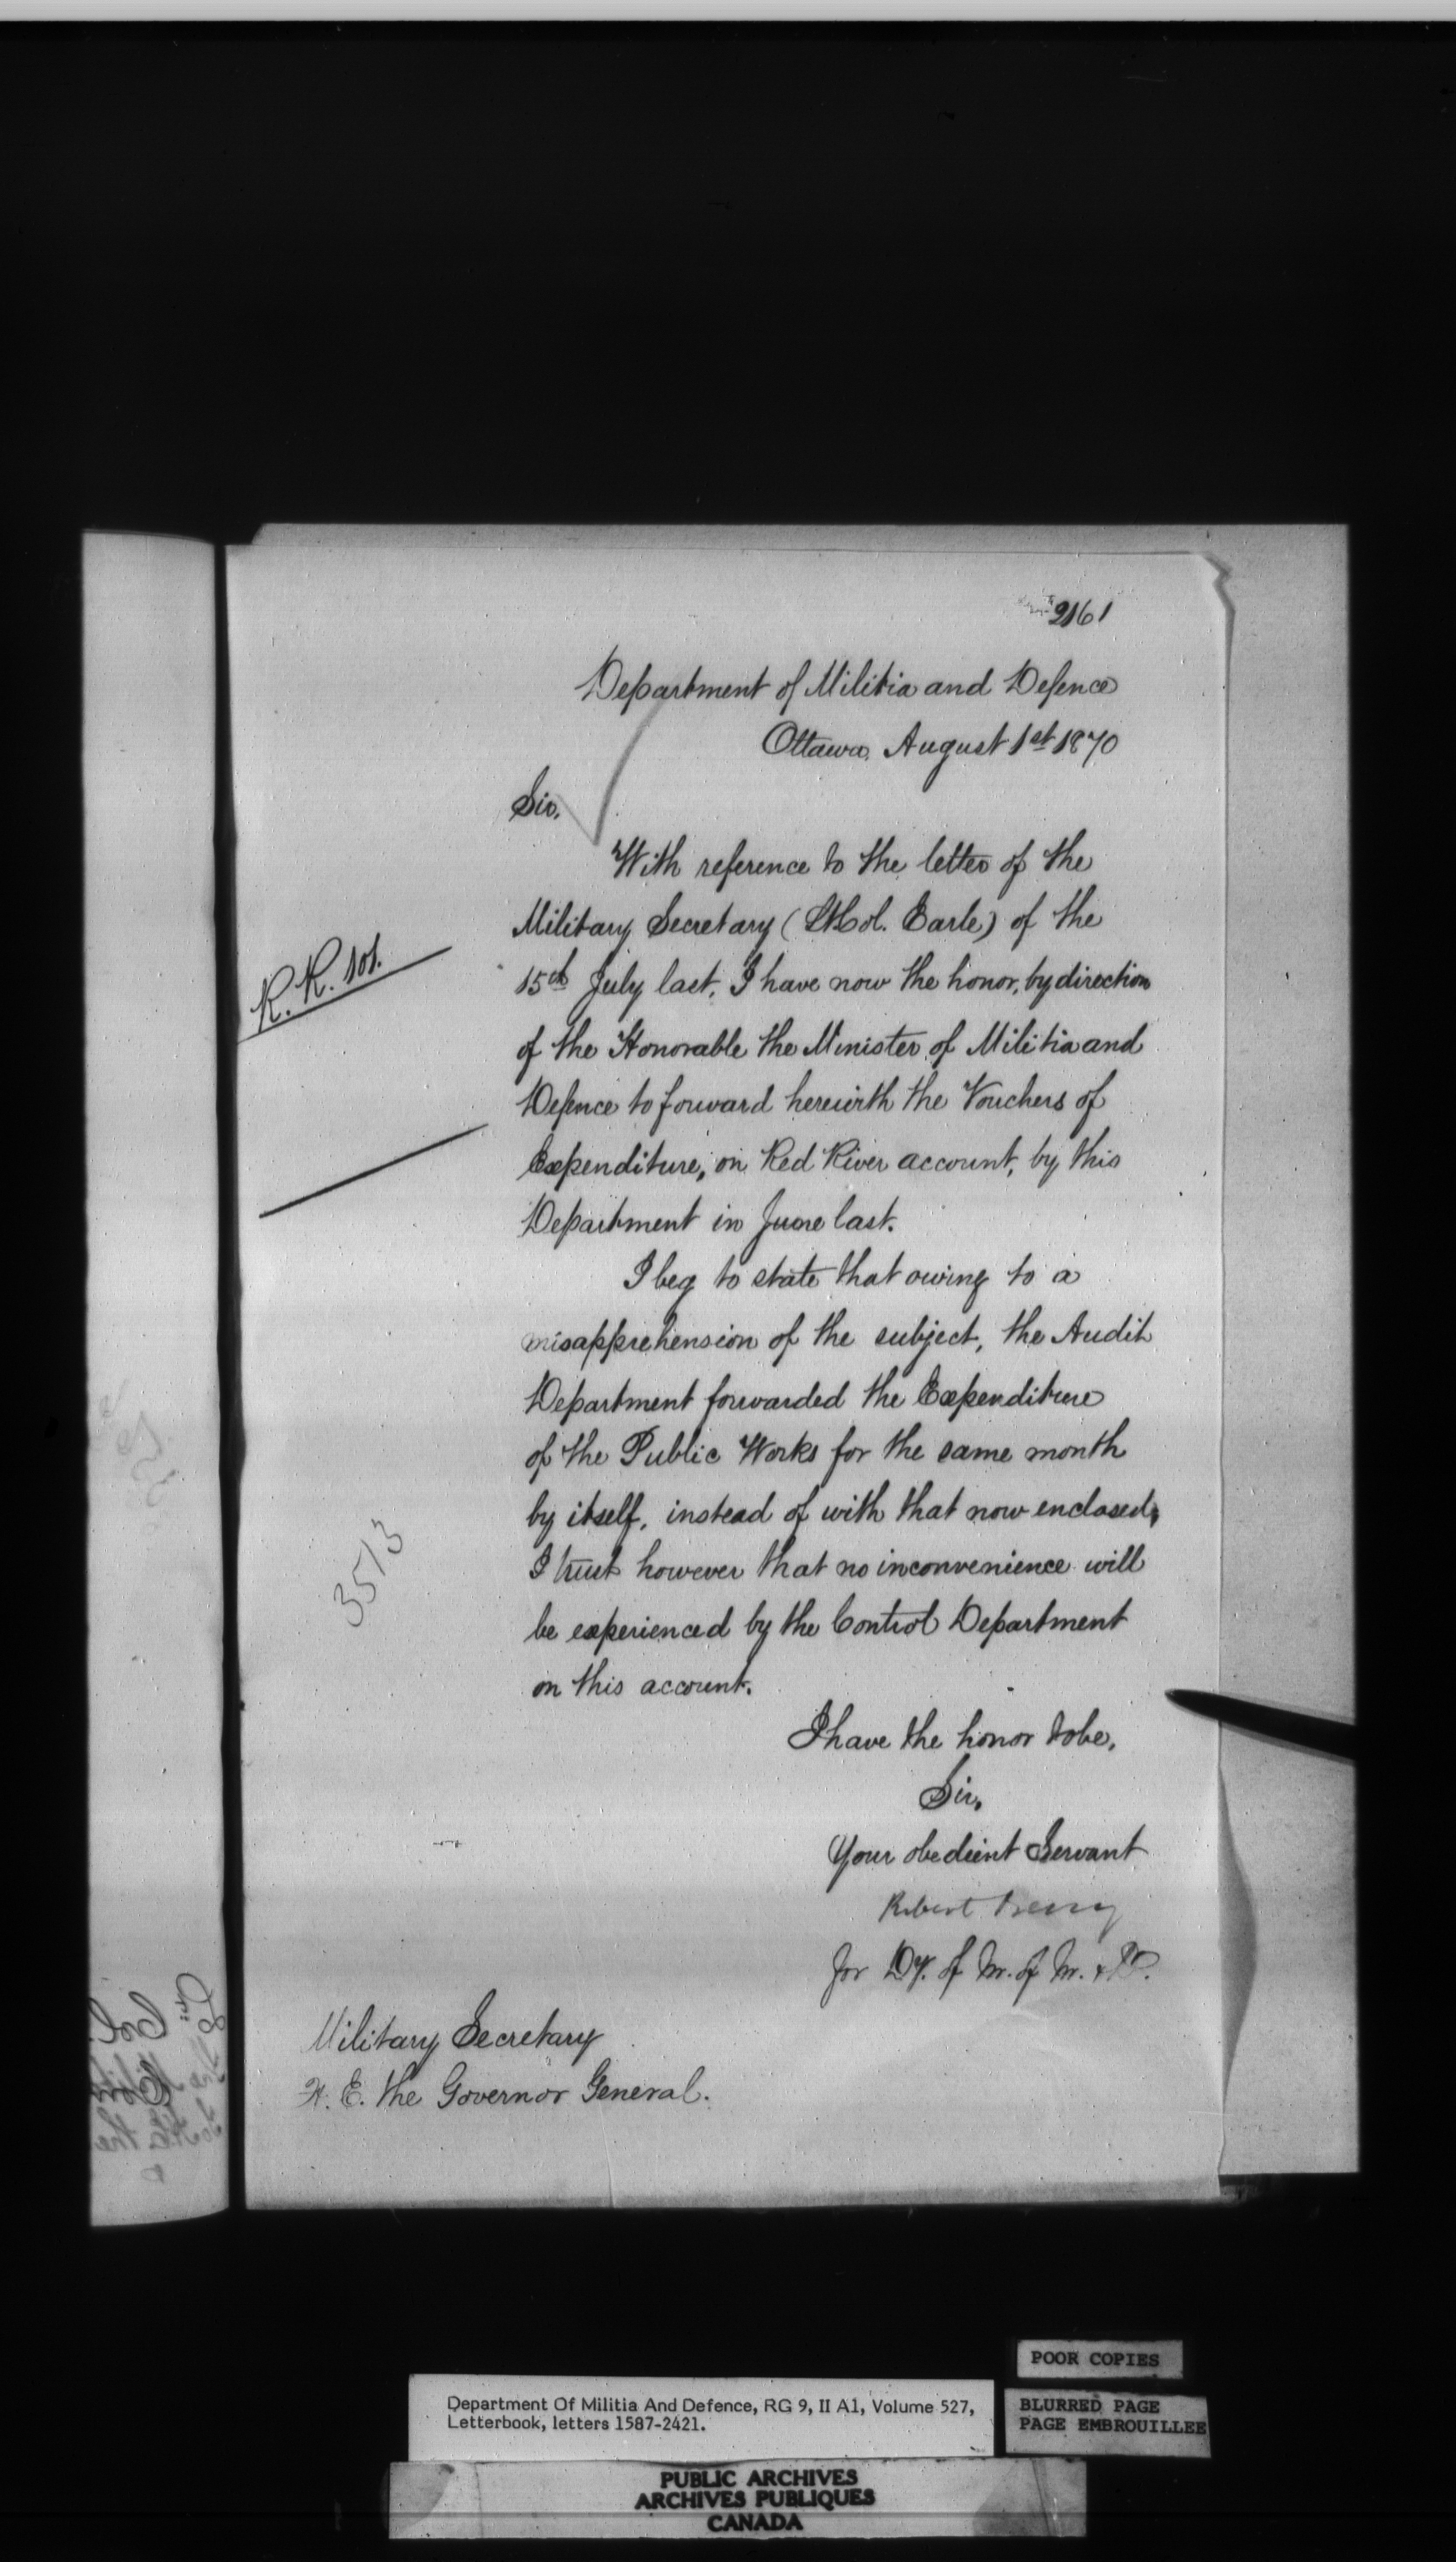 2161
Department of Militia and Defence
Ottawa, August 1st 1870
Sir,
With reference to the letter of the
Military Secretary (Lt Col. Earle) of the
R.R. 101.
15th July last, I have now the honor, by direction
of the Honorable the Minister of Militia and
Defence to forward herewith the Vouchers of
Expenditure, on Red River account, by this
Department in June last.
I beg to state that owing to a
misapprehension of the subject, the Audit
Department forwarded the Expenditure
of the Public Works for the same month
by itself, instead of with that now enclosed,
3513
I trust however that no inconvenience will
be experienced by the Control Department
on this account.
I have the honor to be,
Sir,
Your obedient Servant
Robert
for Dy. of M. of M. & D.
Military Secretary
H. E. the Governor General.
POOR COPIES
Department Of Militia And Defence, RG 9, II A1, Volume 527,
Letterbook, letters 1587-2421.
BLURRED PAGE
PAGE EMBROUILLEE
PUBLIC ARCHIVES
ARCHIVES PUBLIQUES
CANADA